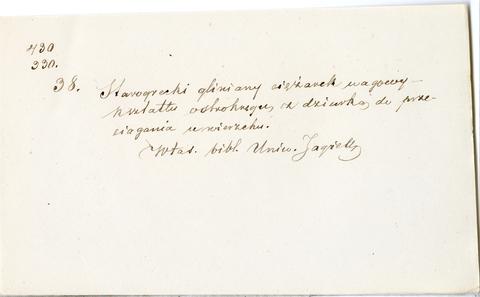 430
330.
38. Starogrecki gliniany ciężarek wagowy
kształtu ostrokręgu, z dziurką do prze-
ciągania u wierzchu.
Włas. bibl. Uniw. Jagiell.